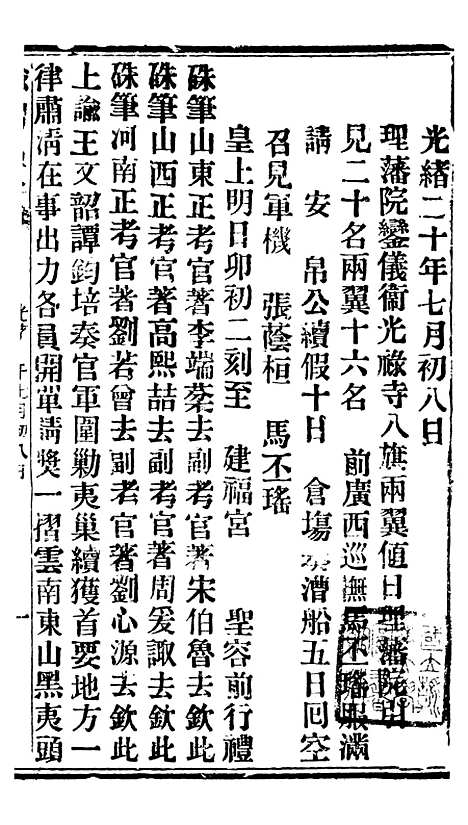 光緒二十年七月初八日
理藩院鑾儀衞光祿寺八旗兩翼値日理藩院引
見二十名兩翼十六名　前廣西巡撫馬丕瑤服滿
請　安　帛公續假十日　倉塲奏漕船五日囘空
召見軍機　張蔭桓　馬丕瑤
皇上明日卯初二刻至　建福宮　聖容前行禮
硃筆山東正考官著李端棻去副考官著宋伯魯去欽此
硃筆山西正考官著高熙喆去副考官著周爰諏去欽此
硃筆河南正考官著劉若曾去副考官著劉心源去欽此
上諭王文韶譚鈞培奏官軍圍勦夷巢續獲首要地方一
律肅淸在事出力各員開單請奬一摺雲南東山黑夷頭
一